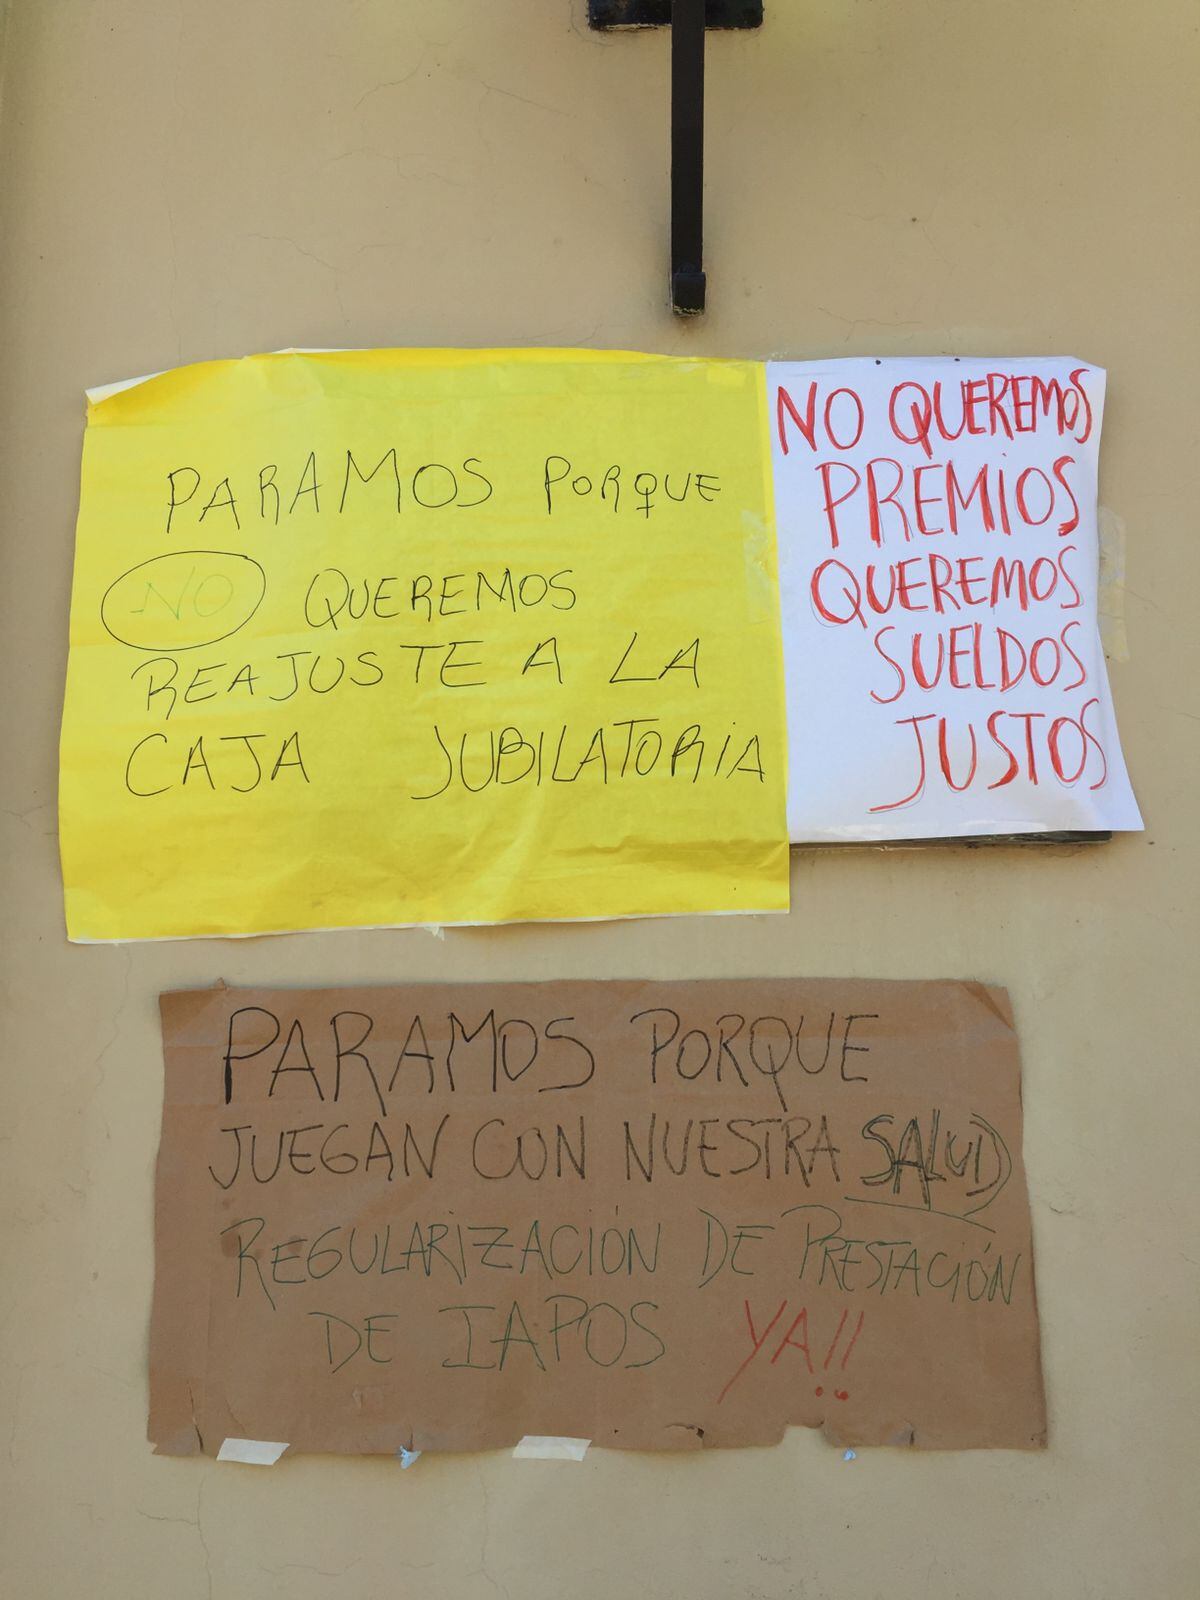 PARAMOS PORQUE
NO QUEREMOS
REAJUSTE A LA
CAJA JUBILATORIA
NO QUEREMOS
PREMIOS
QUEREMOS
SUELDOS
JUSTOS
PARAMOS PORQUE
JUEGAN CON NUESTRA SALUD
REGULARIZACIÓN DE PRESTACIÓN
DE IAPOS YA!!